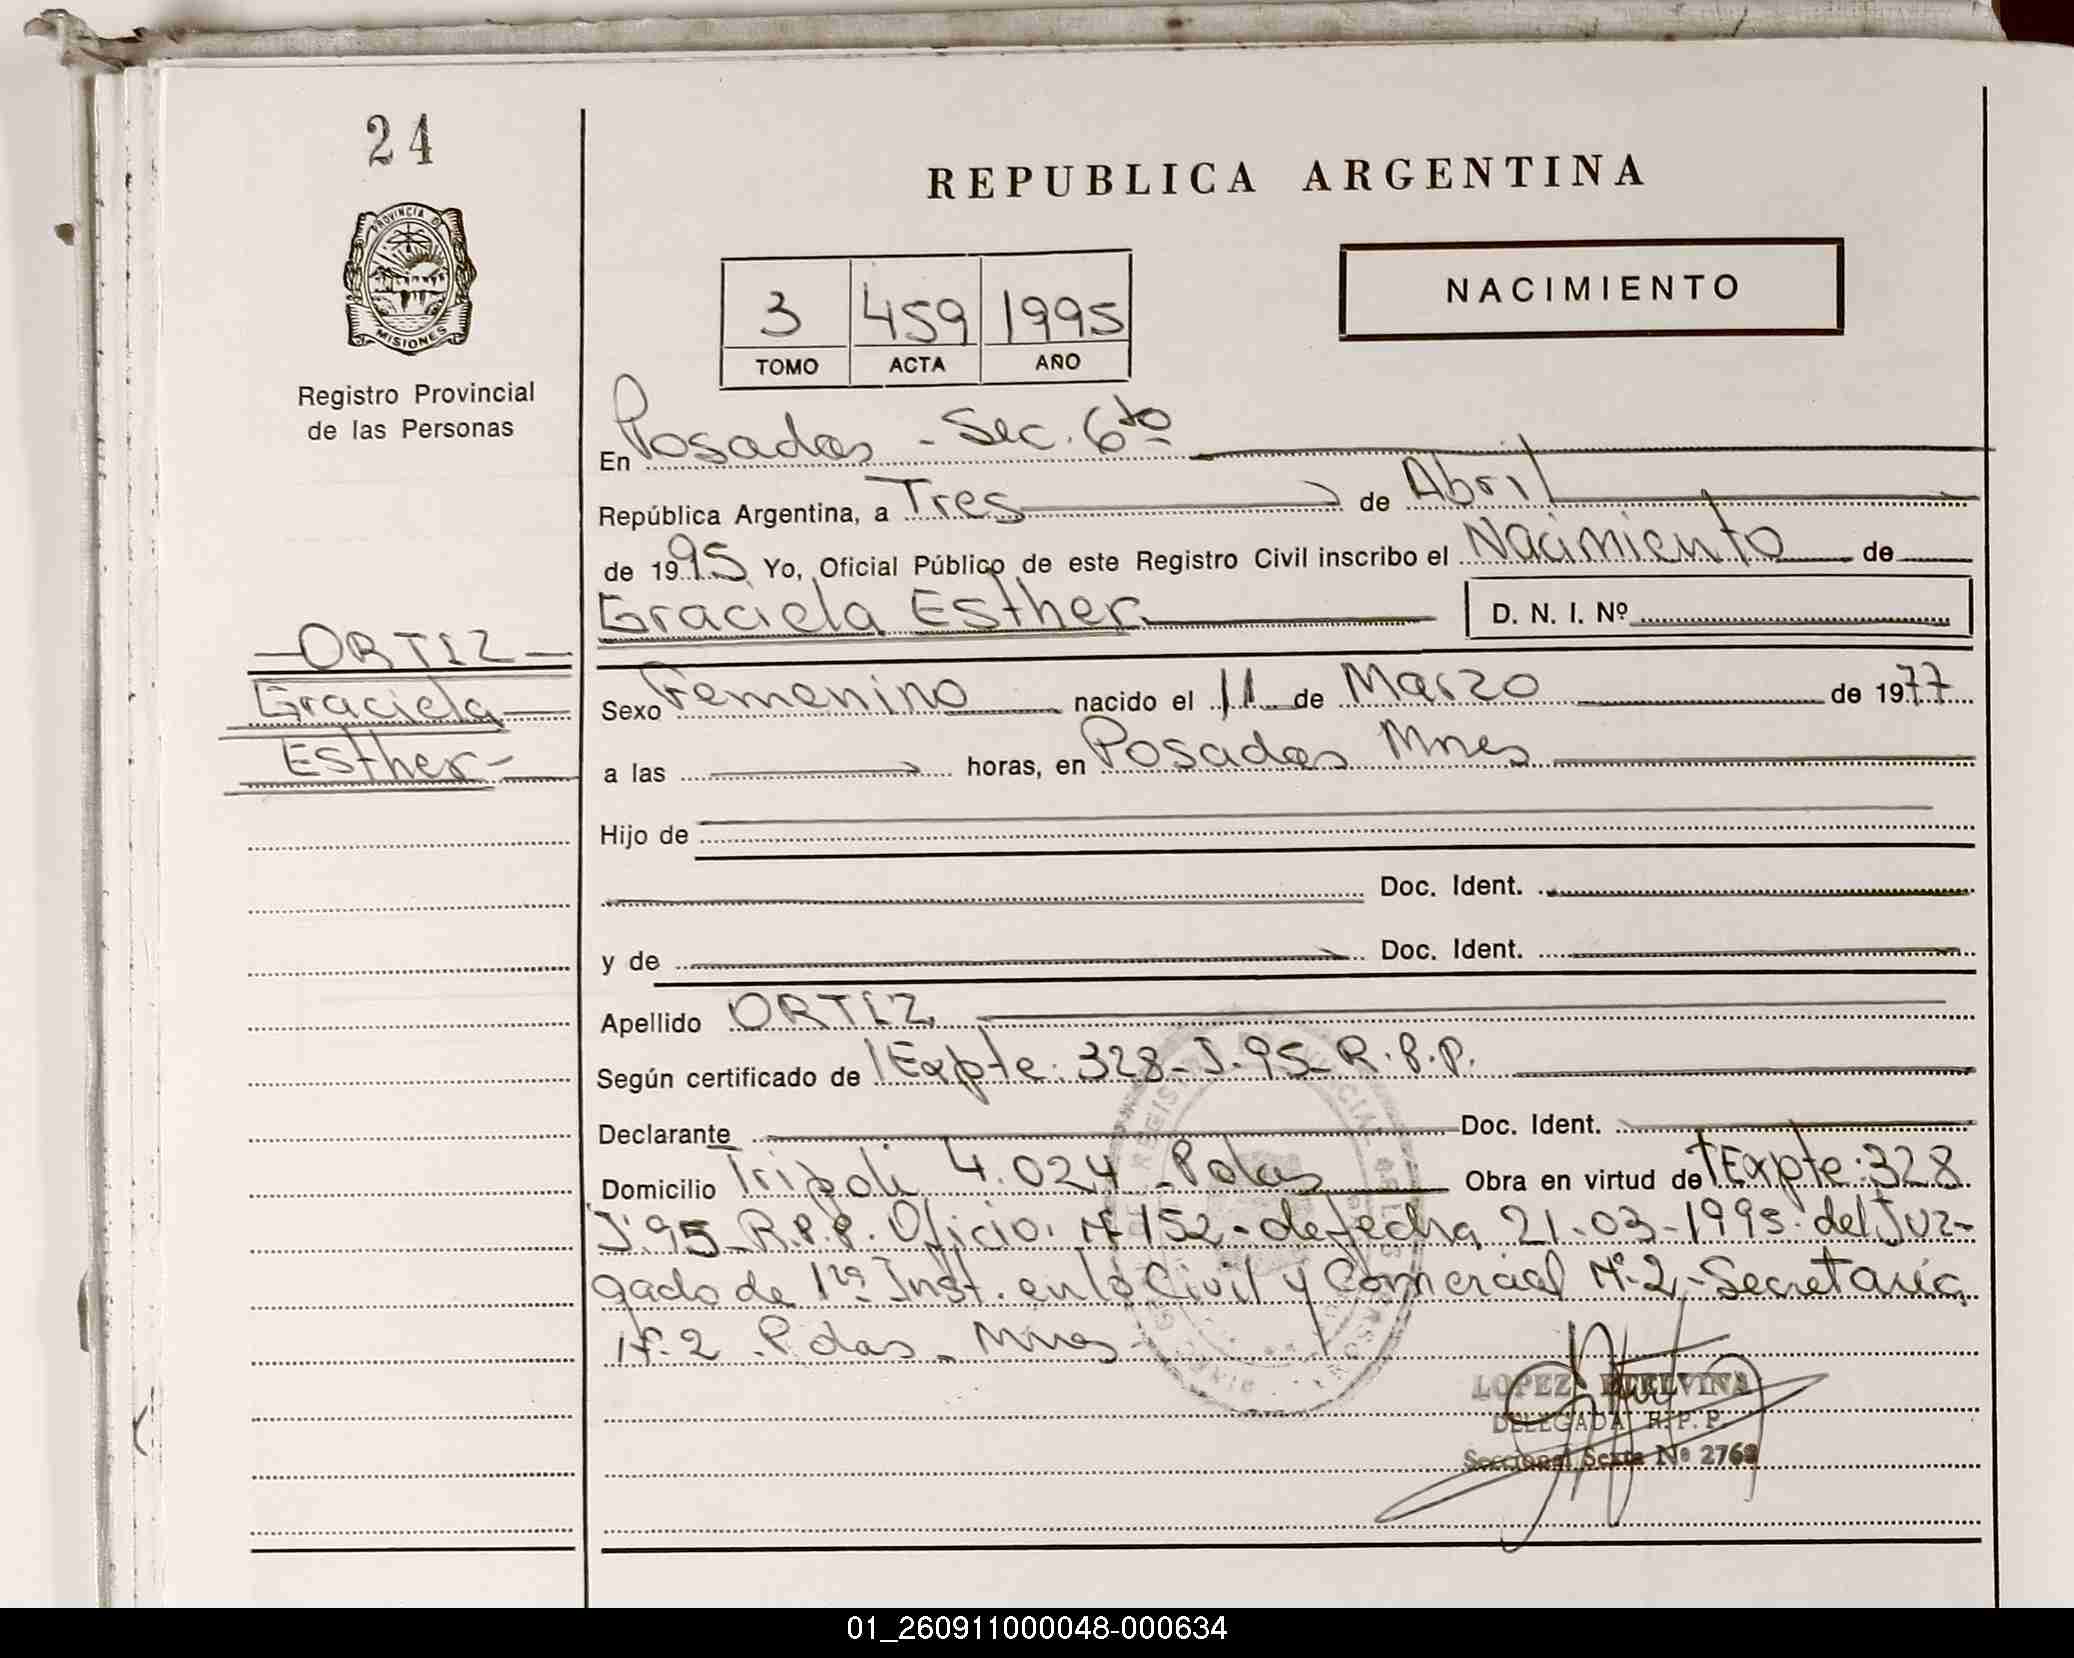 24
PROVINCIA DE
MISIONES
Registro Provincial
de las Personas
REPUBLICA ARGENTINA
3 459 1995
TOMO ACTA AÑO
NACIMIENTO
En Posadas - Sec. 6to
República Argentina, a Tres de Abril
de 1995 Yo, Oficial Público de este Registro Civil inscribo el Nacimiento de
Graciela Esther D. N. I. Nº
ORTIZ
Graciela
Esther-
Sexo Femenino nacido el 11 de Marzo de 1977
a las horas, en Posadas Mnes
Hijo de
Doc. Ident.
y de Doc. Ident.
Apellido ORTIZ
Según certificado de Expte: 328-J-95-R.P.P.
Declarante Doc. Ident.
Domicilio Tripoli 4.024 - Pdas Obra en virtud de Expte: 328
J.95-R.P.P. Oficio. Nº 152-de fecha 21-03-1995. del Juz-
gado de 1ra Inst. en lo Civil y Comercial Nº 2-Secretaria
Nº 2 Pdas - Mnes
LOPEZ ETELVINA
DELEGADA R. P. P.
Seccional Sexta Nº
01_260911000048-000634